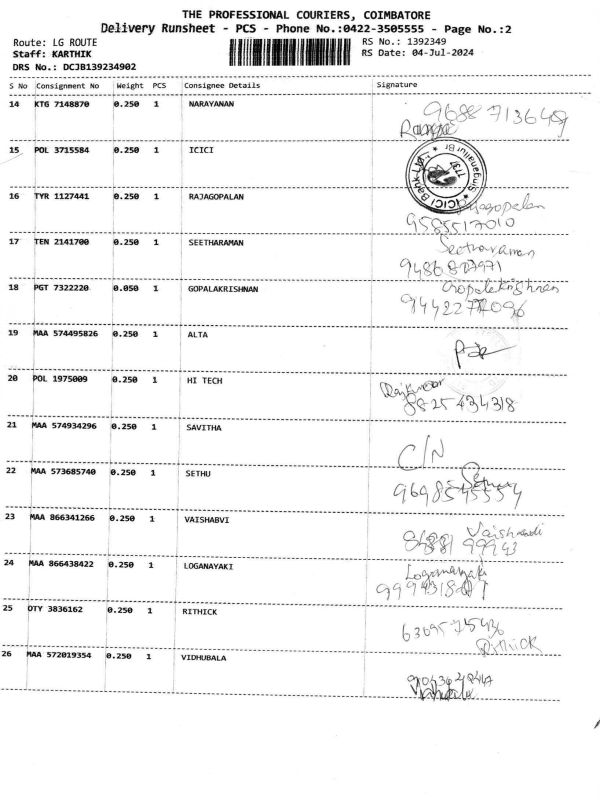 THE PROFESSIONAL COURIERS, COIMBATORE
Delivery Runsheet - PCS - Phone No.:0422-3505555 - Page No.:2
Route: LG ROUTE
RS No.: 1392349
Staff: KARTHIK
RS Date: 04-Jul-2024
DRS No.: DCJB139234902
S No Consignment No Weight PCS Consignee Details Signature
14 KTG 7148870 0.250 1 NARAYANAN
15 POL 3715584 0.250 1 ICICI
ICICI Bank Ltd.,
16 TYR 1127441 0.250 1 RAJAGOPALAN
9585517010
17 TEN 2141700 0.250 1 SEETHARAMAN Seetharaman
18 PGT 7322220 0.050 1 GOPALAKRISHNAN Gopalakrishnan
19 MAA 574495826 0.250 1 ALTA
20 POL 1975009 0.250 1 HI TECH
8825434318
21 MAA 574934296 0.250 1 SAVITHA C/N
22 MAA 573685740 0.250 1 SETHU
23 MAA 866341266 0.250 1 VAISHABVI
24 MAA 866438422 0.250 1 LOGANAYAKI Loganayaki
25 OTY 3836162 0.250 1 RITHICK
Rithick
26 MAA 572019354 0.250 1 VIDHUBALA